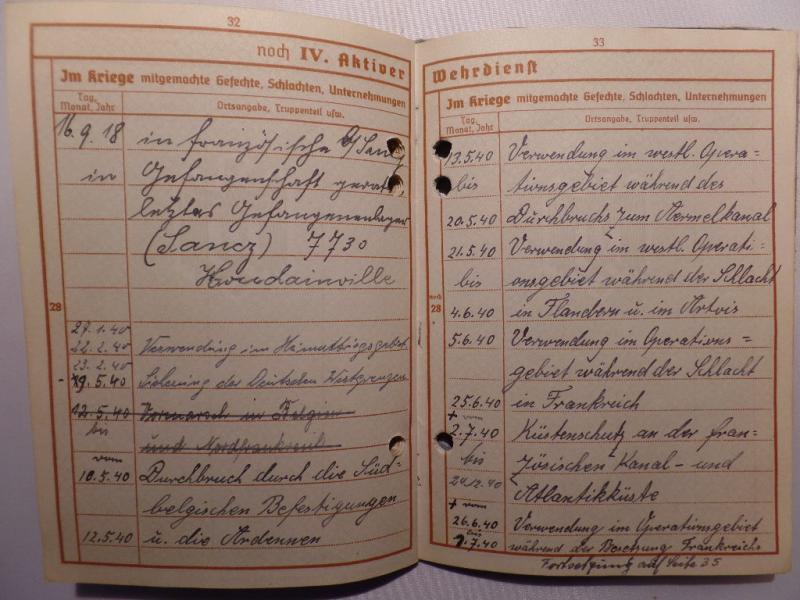 32
noch IV. Aktiver
Im Kriege mitgemachte Gefechte, Schlachten, Unternehmungen
Tag, Monat, Jahr
Ortsangabe, Truppenteil usw.
16.9.18 in französische
in Gefangenschaft
letztes Gefangenenlager
7730
Houdainville
28
27.1.40
22.2.40 Verwendung im Heimatkriegsgebiet
23.2.40
9.5.40 Sicherung der Deutschen Westgrenzen
12.5.40 Vormarsch in Belgien
bis und Nordfrankreich
vom
10.5.40 Durchbruch durch die Süd-
belgischen Befestigungen
12.5.40 u. die Ardennen
33
Wehrdienst
Im Kriege mitgemachte Gefechte, Schlachten, Unternehmungen
Tag, Monat, Jahr
Ortsangabe, Truppenteil usw.
13.5.40 Verwendung im westl. Opera=
bis tionsgebiet während des
20.5.40 Durchbruchs zum Aermelkanal
21.5.40 Verwendung im westl. Operati-
bis onsgebiet während der Schlacht
noch 28
4.6.40 in Flandern u. im Artois
5.6.40 Verwendung im Operations=
gebiet während der Schlacht
25.6.40 in Frankreich
+ vom
2.7.40 Küstenschutz an der fran-
bis zösischen Kanal- und
Atlantikküste
+ vom
26.6.40 Verwendung im Operationsgebiet
bis
.7.40 während der Besetzung Frankreichs
Fortsetzung auf Seite 35